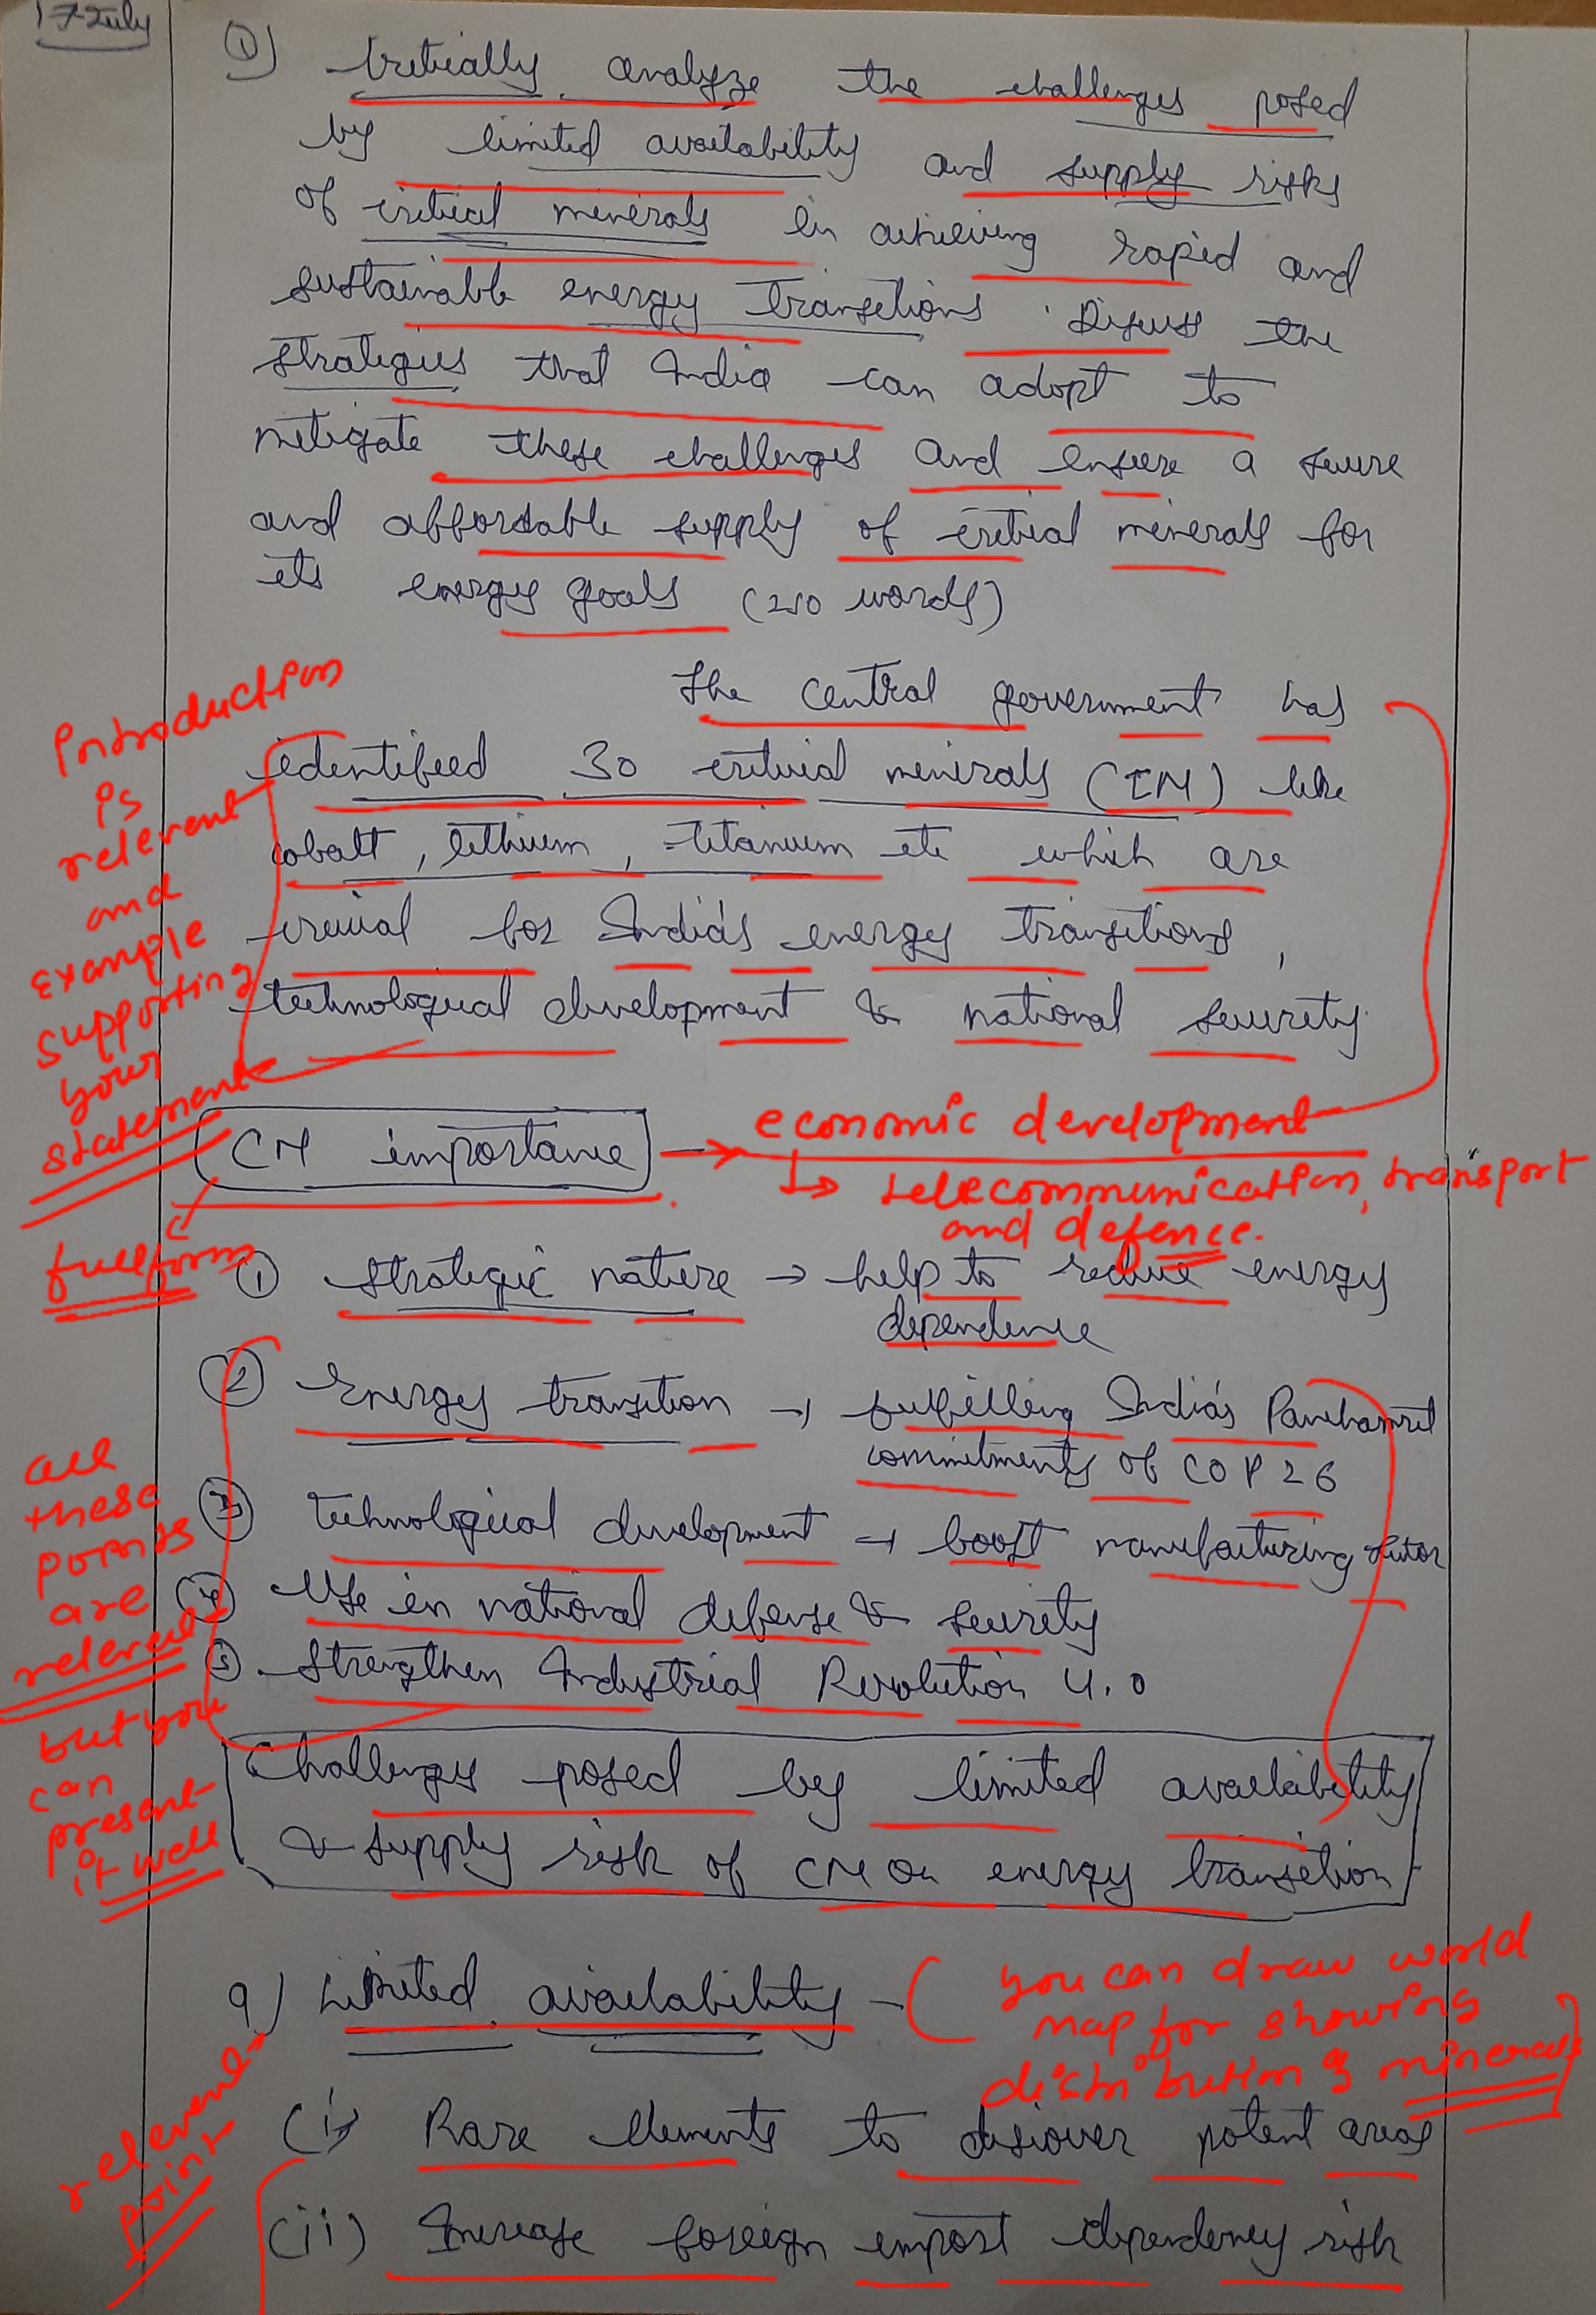 17 July
① Critically analyze the challenges posed
by limited availability and supply risks
of critical minerals in achieving rapid and
sustainable energy transitions. Discuss the
strategies that India can adopt to
mitigate these challenges and ensure a secure
and affordable supply of critical minerals for
its energy goals (250 words)
The central government has
identified 30 critical minerals (CM) like
cobalt, lithium, titanium etc which are
crucial for India's energy transitions,
technological development & national security
Introduction
is
relevant
and
example
supporting
your
statement
CM importance → economic development
↳ telecommunication, transport
and defence.
fullform
① Strategic nature → help to reduce energy
dependence
② Energy transition → fulfilling India's Panchamrit
commitments of COP 26
③ Technological development → boost manufacturing sector
④ Use in national defense & security
⑤ Strengthen Industrial Revolution 4.0
all
these
points
are
relevant
but you
can
present
it well
Challenges posed by limited availability
& supply risk of CM on energy transition
a) Limited availability - (you can draw world
map for showing
distribution of minerals
relevant
point
(i) Rare elements to discover potent areas
(ii) Increase foreign import dependency risk